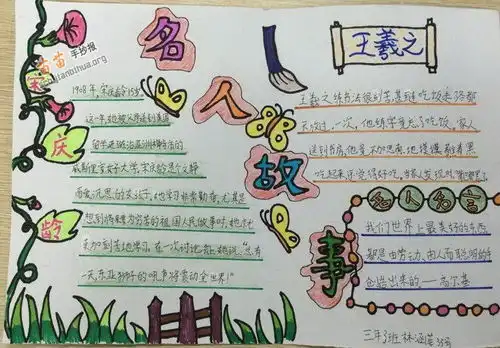 苗苗手抄报
miaolianbihua.org
名人故事
宋庆龄
1908年,宋庆龄15岁
这一年,她被父亲送到美国
留学
威斯里安女子大学,宋庆龄是个文静
而爱沉思的女孩子,她学习非常勤奋,尤其是
想到将来要为穷苦的祖国人民做事时,她就
更加刻苦地学习。在一次讨论会上她说:"总有
一天,东亚狮子的吼声将震动全世界!"
王羲之
王羲之练书法很刻苦,甚至连吃饭走路都
不放过,一次,他练字竟忘了吃饭,家人
送到书房,他竟不加思索,地馍馍蘸着墨
吃起来,还觉得好吃,当家人发现时,
名人名言
我们世界上最美好的东西
都是由劳动、由人的聪明的手
创造出来的——高尔基
三年3班 林涵